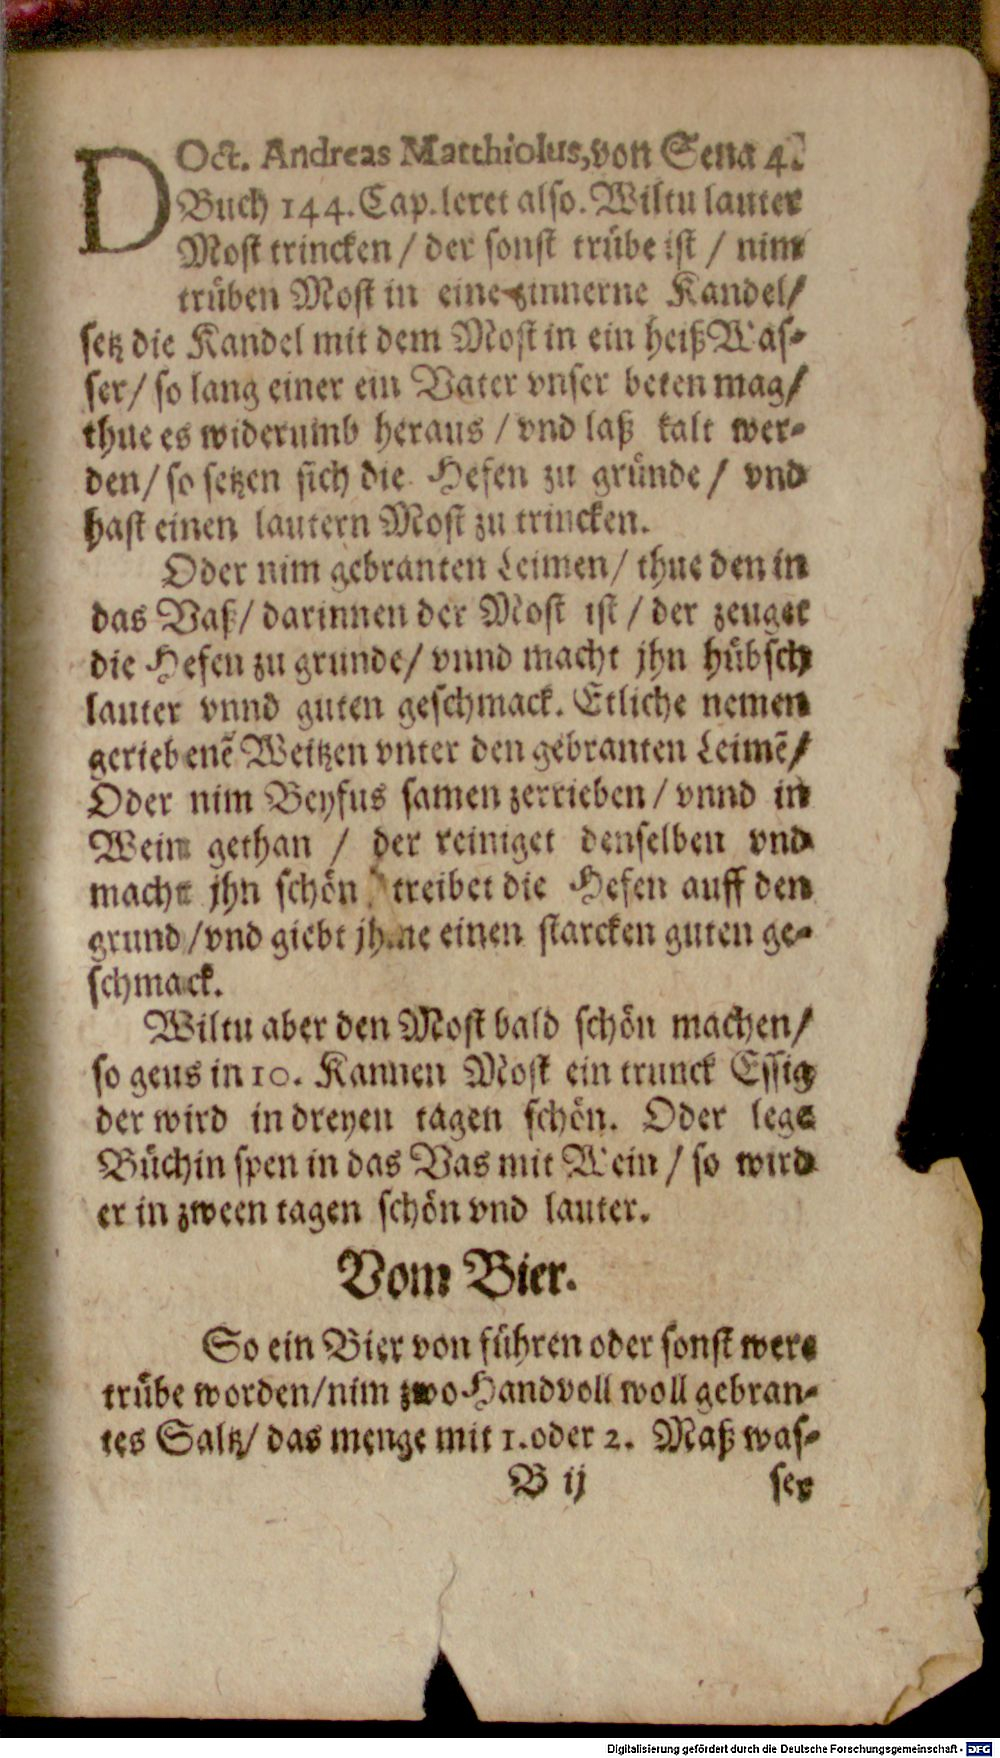 DOct. Andreas Matthiolus, von Sena 4.
Buch 144. Cap. leret also. Wiltu lauter
Most trincken / der sonst trübe ist / nim
trüben Most in eine zinnerne Kandel /
setz die Kandel mit dem Most in ein heiß Was-
ser / so lang einer ein Vater vnser beten mag /
thue es widerumb heraus / vnd laß kalt wer-
den / so setzen sich die Hefen zu gründe / vnd
hast einen lautern Most zu trincken.
Oder nim gebranten Leimen / thue den in
das Vaß / darinnen der Most ist / der zeuget
die Hefen zu grunde / vnnd macht jhn hübsch
lauter vnnd guten geschmack. Etliche nemen
geriebenẽ Weitzen vnter den gebranten Leimẽ /
Oder nim Beyfus samen zerrieben / vnnd in
Wein gethan / der reiniget denselben vnd
macht jhn schön / treibet die Hefen auff den
grund / vnd giebt jhme einen starcken guten ge-
schmack.
Wiltu aber den Most bald schön machen /
so geus in 10. Kannen Most ein trunck Essig
der wird in dreyen tagen schön. Oder lege
Büchin spen in das Vas mit Wein / so wird
er in zween tagen schön vnd lauter.
Vom Bier.
So ein Bier von führen oder sonst were
trübe worden / nim zwo Handvoll woll gebran-
tes Saltz / das menge mit 1. oder 2. Maß was-
B ij ser
Digitalisierung gefördert durch die Deutsche Forschungsgemeinschaft - DFG